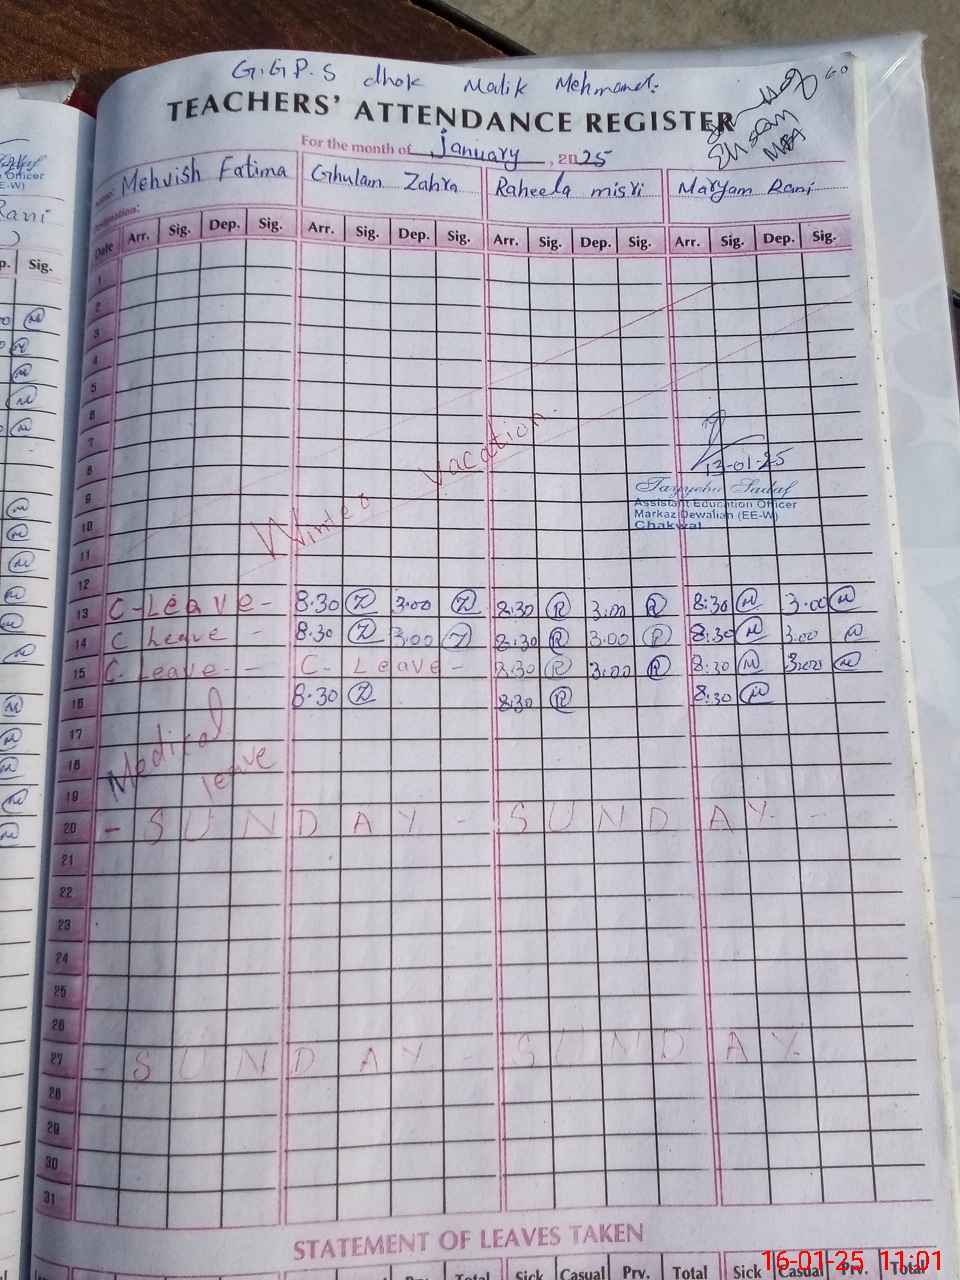 G.G.P.S dhok Malik Mehmand:
TEACHERS' ATTENDANCE REGISTER
Ehsan
MEA
For the month of January, 2025
Name: Mehvish Fatima Ghulam Zahra Raheela misri Maryam Rani
Designation:
Date Arr. Sig. Dep. Sig. Arr. Sig. Dep. Sig. Arr. Sig. Dep. Sig. Arr. Sig. Dep. Sig.
1
2
3
4
5
6
7
8
9
10
11
12
Winter Vacation
13-01-25
Tayyeba Sadaf
Assistant Education Officer
Markaz Dewalian (EE-W)
Chakwal
13 C-Leave- 8.30 Z 3.00 Z 8:30 R 3.00 R 8:30 M 3.00 M
14 C Leave - 8.30 Z 3.00 Z 8:30 R 3.00 R 8:30 M 3.00 M
15 C-Leave-- C-Leave- 8:30 R 3.00 R 8:30 M 3.00 M
16 8.30 Z 8:30 R 8:30 M
17
18
19
Medical leave
20 - SUNDAY - SUNDAY -
21
22
23
24
25
26
27 - SUNDAY - SUNDAY
28
29
30
31
STATEMENT OF LEAVES TAKEN
Total Sick Casual Prv. Total Sick Casual Prv. Total
Officer
E-W)
Rani
p. Sig.
16-01-25 11:01